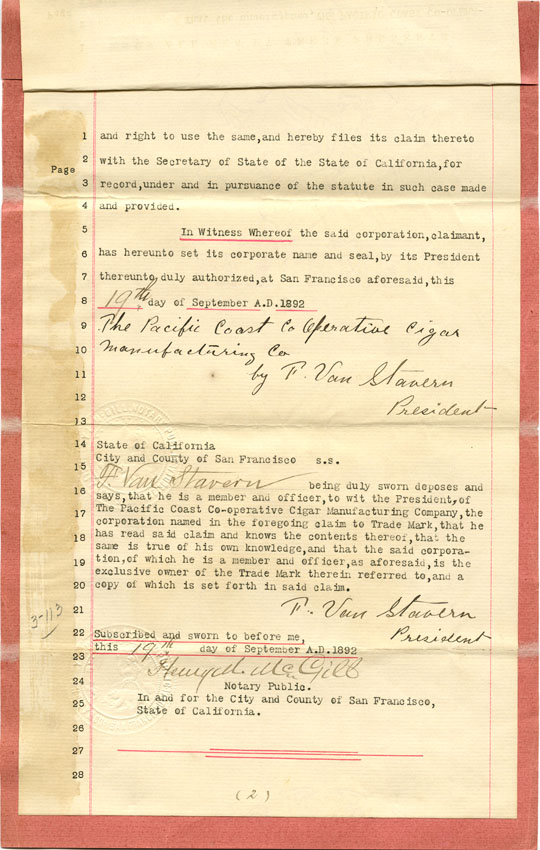 1 and right to use the same,and hereby files its claim thereto
2 with the Secretary of State of the State of California,for
Page
3 record,under and in pursuance of the statute in such case made
4 and provided.
5 In Witness Whereof the said corporation,claimant,
6 has hereunto set its corporate name and seal,by its President
7 thereunto duly authorized,at San Francisco aforesaid,this
8 19th day of September A.D.1892
9 The Pacific Coast Co Operative Cigar
10 Manufacturing Co
11 by F. Van Stavern
12 President
13
14 State of California
City and County of San Francisco s.s.
15 F. Van Stavern being duly sworn deposes and
16 says,that he is a member and officer,to wit the President,of
The Pacific Coast Co-operative Cigar Manufacturing Company,the
17 corporation named in the foregoing claim to Trade Mark,that he
18 has read said claim and knows the contents thereof,that the
same is true of his own knowledge,and that the said corpora-
19 tion,of which he is a member and officer,as aforesaid,is the
exclusive owner of the Trade Mark therein referred to,and a
20 copy of which is set forth in said claim.
21 F. Van Stavern
3-113
22 Subscribed and sworn to before me, President
23 this 19th day of September A.D.1892
Henry M. McGill
24 Notary Public.
25 In and for the City and County of San Francisco,
State of California.
26
27
28
(2)